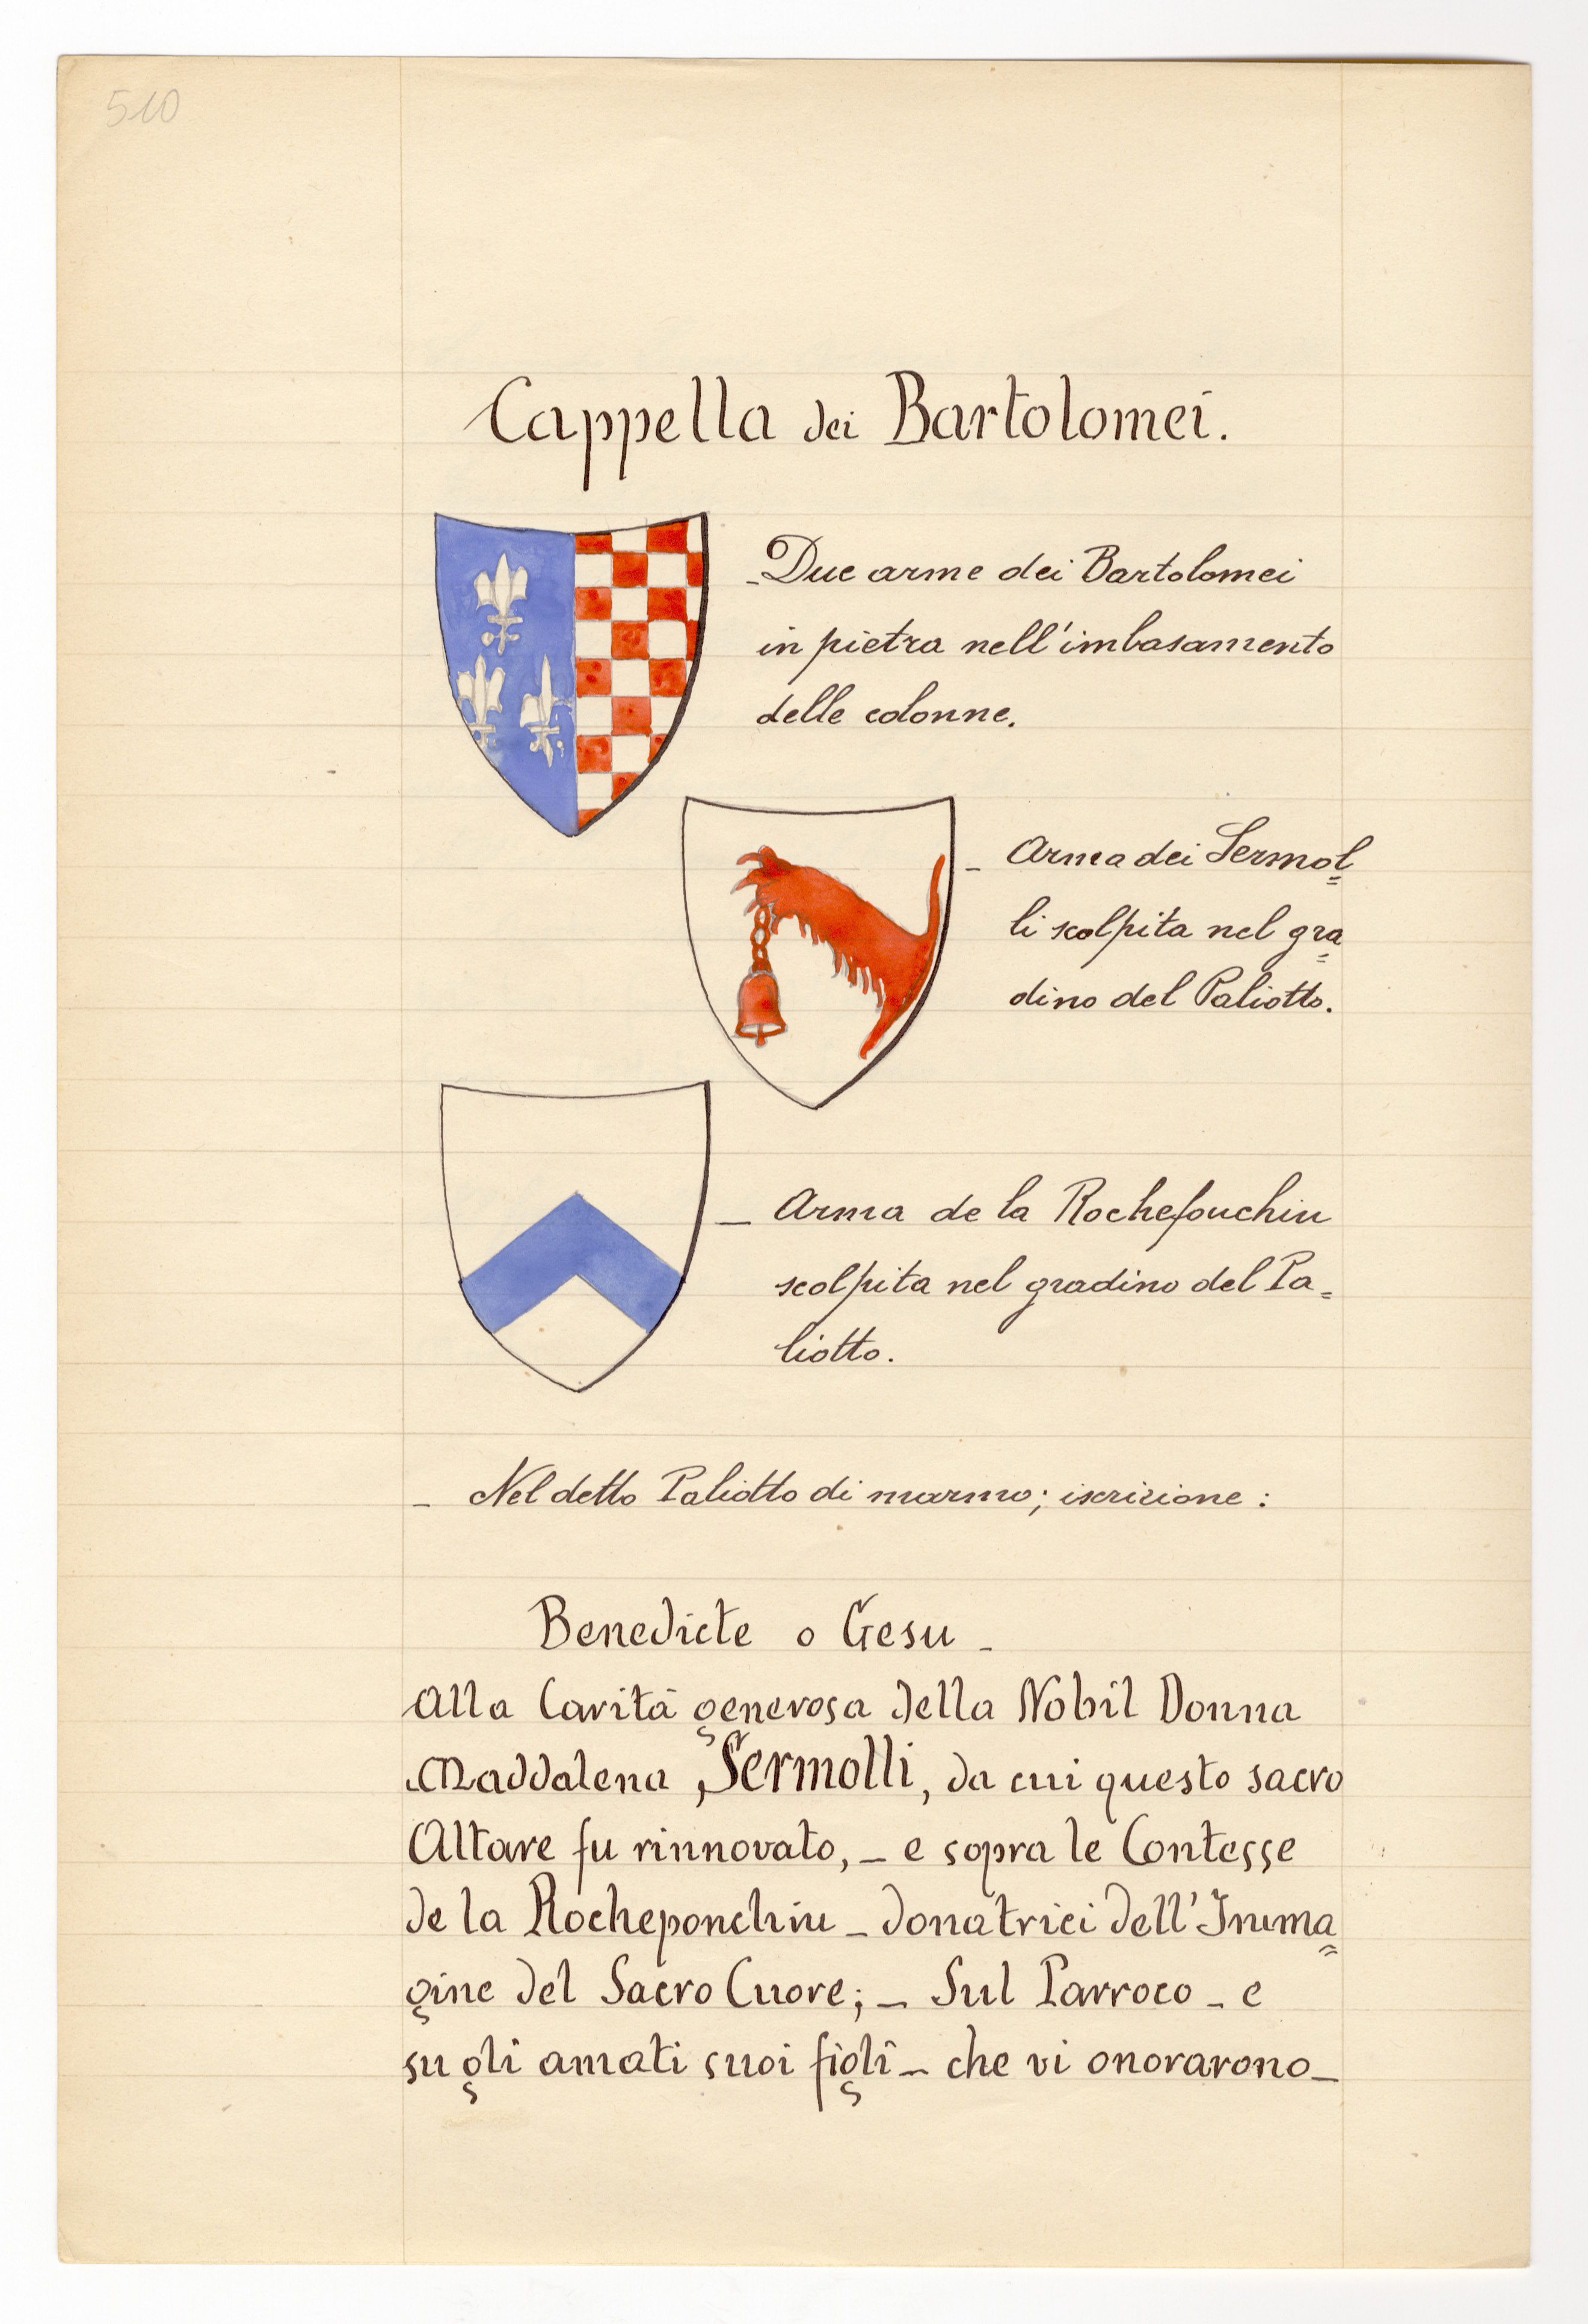 510
Cappella dei Bartolomei.
- Due arme dei Bartolomei
in pietra nell'imbasamento
delle colonne.
- Arma dei Sermol=
li scolpita nel gra=
dino del Paliotto.
- Arma de la Rochefouchin
scolpita nel gradino del Pa=
liotto.
- Nel detto Paliotto di marmo; iscrizione:
Benedicte o Gesu -
alla Carità generosa della Nobil Donna
Maddalena Sermolli, da cui questo sacro
Altare fu rinnovato, - e sopra le Contesse
de la Rocheponchin - donatrici dell'Imma=
gine del Sacro Cuore; - Sul Parroco - e
su gli amati suoi figli - che vi onorarono -